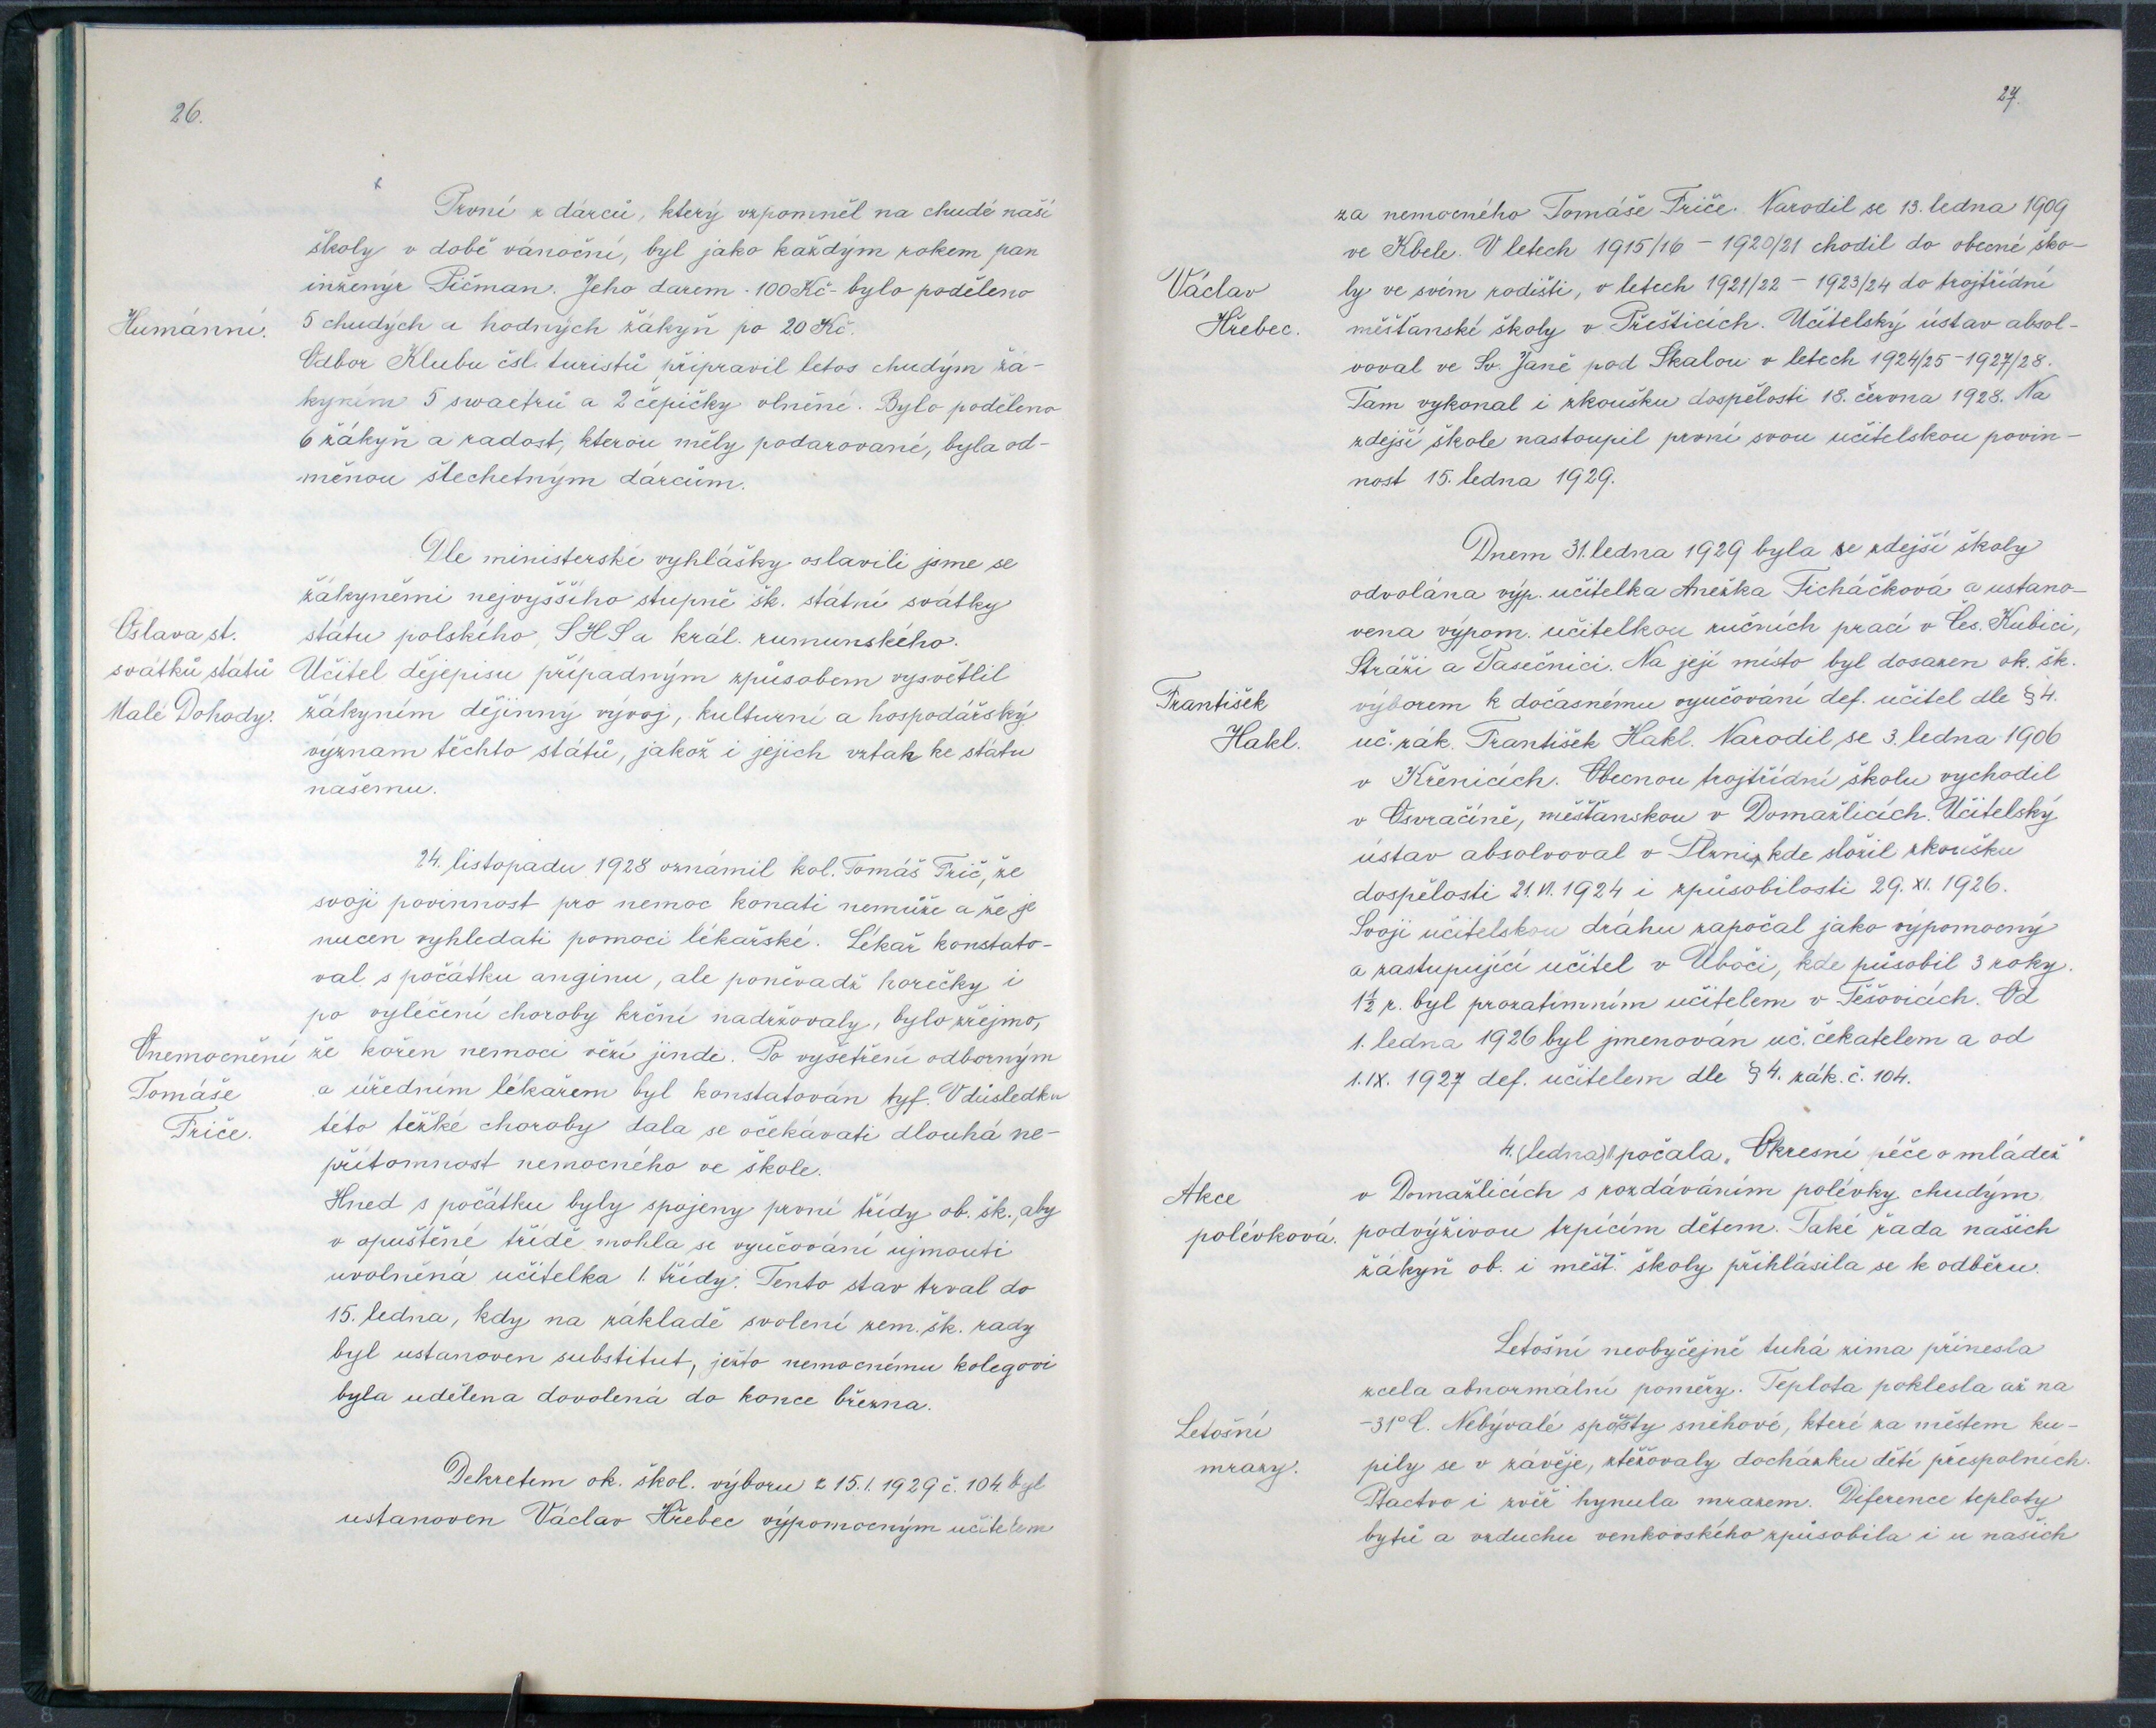 26.
První z dárců, který vzpomněl na chudé naší
školy v době vánoční, byl jako každým rokem pan
inženýr Pičman. Jeho darem - 100 Kč - bylo poděleno
Humánní. 5 chudých a hodných žákyň po 20 Kč.
Odbor Klubu čsl. turistů připravil letos chudým žá-
kyním 5 swaetrů a 2 čepičky vlněné. Bylo poděleno
6 žákyň a radost, kterou měly podarované, byla od-
měnou šlechetným dárcům.
Dle ministerské vyhlášky oslavili jsme se
žákyněmi nejvyššího stupně šk. státní svátky
Oslava st. státu polského, SHS a král. rumunského.
svátků států Učitel dějepisu případným způsobem vysvětlil
Malé Dohody. žákyním dějinný vývoj, kulturní a hospodářský
význam těchto států, jakož i jejich vztah ke státu
našemu.
24. listopadu 1928 oznámil kol. Tomáš Frič, že
svoji povinnost pro nemoc konati nemůže a že je
nucen vyhledati pomoci lékařské. Lékař konstato-
val s počátku anginu, ale poněvadž horečky i
po vyléčení choroby krční nadržovaly, bylo zřejmo,
Onemocnění že kořen nemoci vězí jinde. Po vyšetření odborným
Tomáše a úředním lékařem byl konstatován tyf. V důsledku
Friče. této těžké choroby dala se očekávati dlouhá ne-
přítomnost nemocného ve škole.
Hned s počátku byly spojeny první třídy ob. šk., aby
v opuštěné třídě mohla se vyučování ujmouti
uvolněná učitelka 1. třídy. Tento stav trval do
15. ledna, kdy na základě svolení zem. šk. rady
byl ustanoven substitut, ježto nemocnému kolegovi
byla udělena dovolená do konce března.
Dekretem ok. škol. výboru z 15. 1. 1929 č. 104 byl
ustanoven Václav Hřebec výpomocným učitelem
27.
za nemocného Tomáše Friče. Narodil se 13. ledna 1909
ve Kbele. V letech 1915/16 - 1920/21 chodil do obecné ško-
Václav ly ve svém rodišti, v letech 1921/22 - 1923/24 do trojtřídní
Hřebec. měšťanské školy v Přešticích. Učitelský ústav absol-
voval ve Sv. Janě pod Skalou v letech 1924/25 - 1927/28.
Tam vykonal i zkoušku dospělosti 18. června 1928. Na
zdejší škole nastoupil první svou učitelskou povin-
nost 15. ledna 1929.
Dnem 31. ledna 1929 byla ze zdejší školy
odvolána výp. učitelka Anežka Ticháčková a ustano-
vena výpom. učitelkou ručních prací v Čes. Kubici,
Stráži a Pasečnici. Na její místo byl dosazen ok. šk.
František výborem k dočasnému vyučování def. učitel dle § 4.
Hakl. uč. zák. František Hakl. Narodil se 3. ledna 1906
v Křenicích. Obecnou trojtřídní školu vychodil
v Osvračíně, měšťanskou v Domažlicích. Učitelský
ústav absolvoval v Plzni, kde složil zkoušku
dospělosti 21. VI. 1924 i způsobilosti 29. XI. 1926.
Svoji učitelskou dráhu započal jako výpomocný
a zastupující učitel v Úboči, kde působil 3 roky.
1½ r. byl prozatimním učitelem v Těšovicích. Od
1. ledna 1926 byl jmenován uč. čekatelem a od
1. IX. 1927 def. učitelem dle § 4. zák. č. 104.
4. (ledna) počala „Okresní péče o mládež“
Akce v Domažlicích s rozdáváním polévky chudým
polévková. podvýživou trpícím dětem. Také řada našich
žákyň ob. i měšť. školy přihlásila se k odběru.
Letošní neobyčejně tuhá zima přinesla
zcela abnormální poměry. Teplota poklesla až na
Letošní -31° C. Nebývalé spousty sněhové, které za městem ku-
mrazy. pily se v závěje, ztěžovaly docházku dětí přespolních.
Ptactvo i zvěř hynula mrazem. Diference teploty
bytů a vzduchu venkovského způsobila i u našich